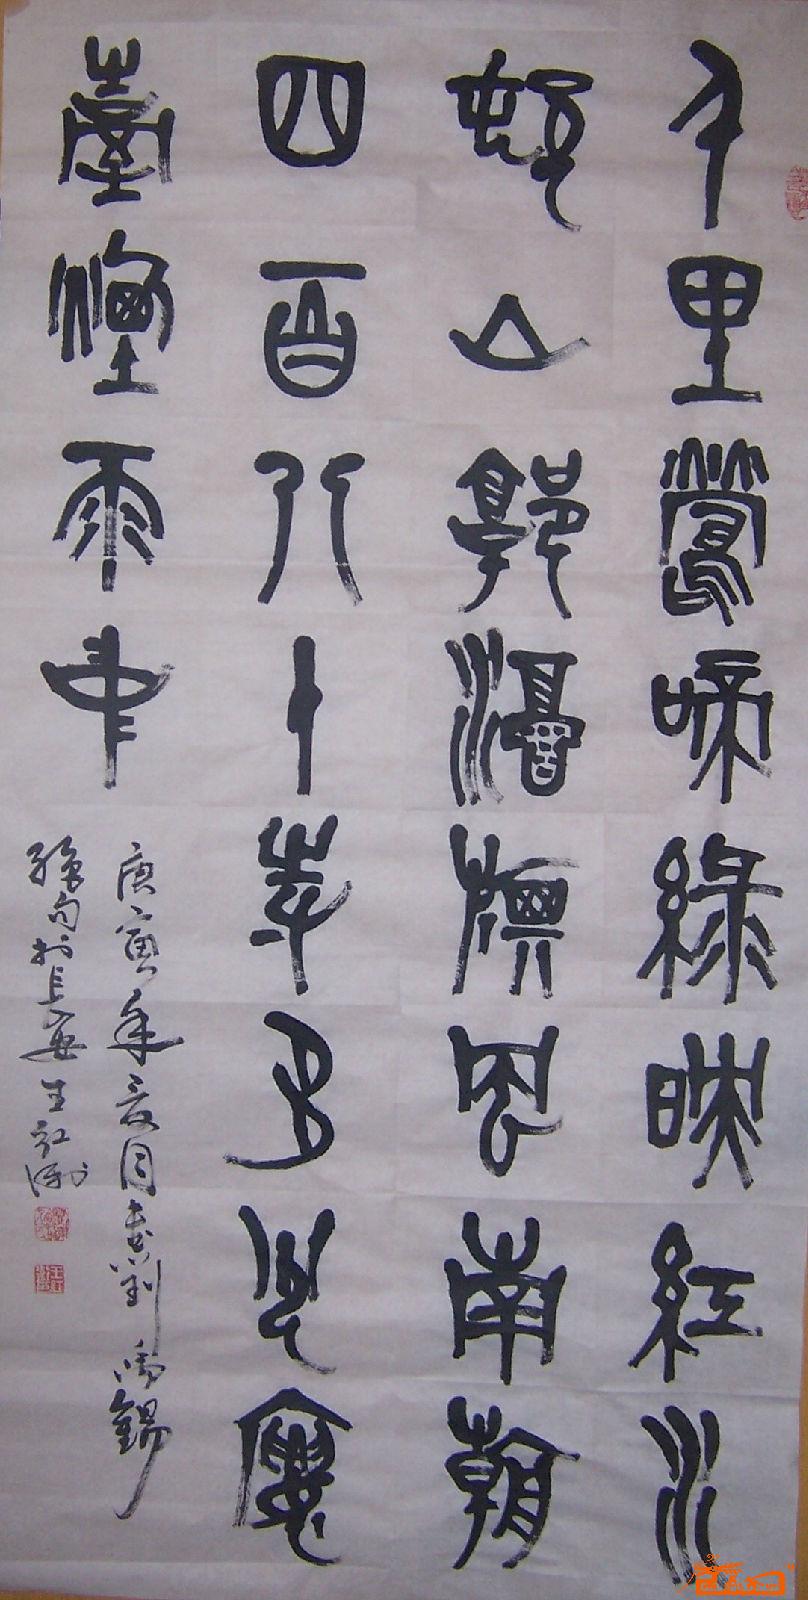 千里鶯啼綠映紅水
邨山郭酒旗風南朝
四百八十寺多少樓
臺煙雨中
庚寅年夏月書劉禹錫
絕句於長安王